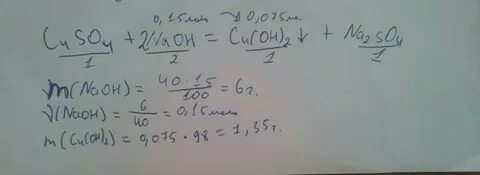 0,15моль 0,075мо.
CuSO4 + 2NaOH = Cu(OH)2 ↓ + Na2SO4
1 2 1 1
m(NaOH) = 40·15/100 = 6г.
ν(NaOH) = 6/40 = 0,15моль
m(Cu(OH)2) = 0,075·98 = 1,35г.